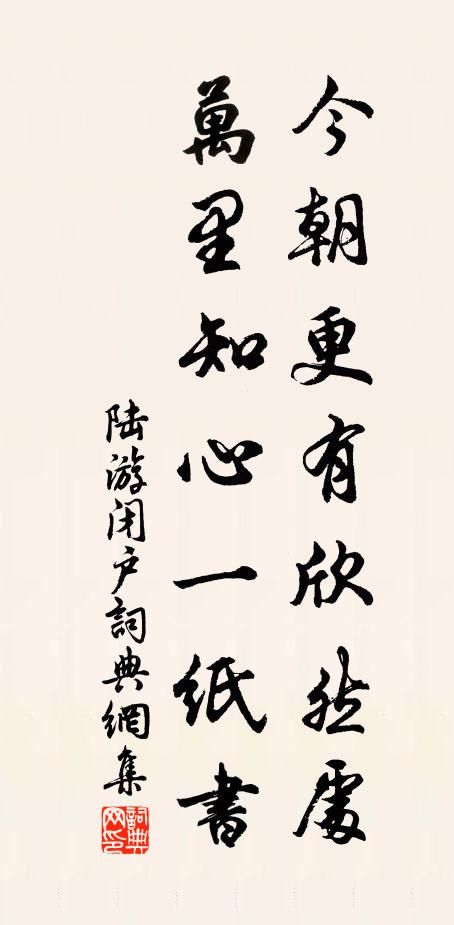 今朝更有欣然處
萬里知心一紙書
陆游闭户詞典網集
詞典網印